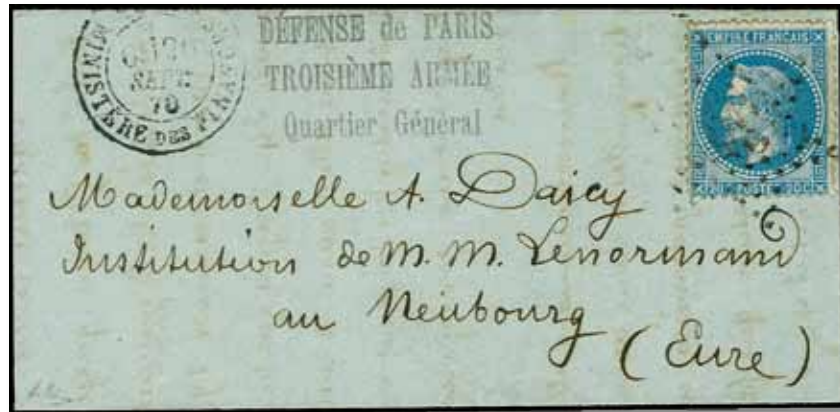 MINISTÈRE DES FINANCES
SEPT.
70
DÉFENSE de PARIS
TROISIÈME ARMÉE
Quartier Général
EMPIRE FRANÇAIS
20 C POSTES 20 C
Mademoiselle A. Daicy
Institution de M. M. Lenormand
au Neubourg
(Eure)